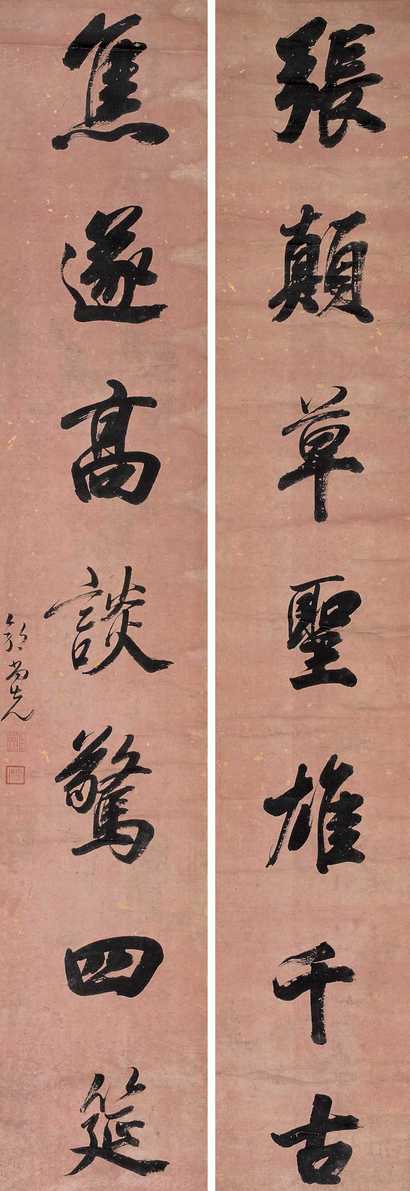 張顛草聖雄千古
焦遂高談驚四筵
郭尚先